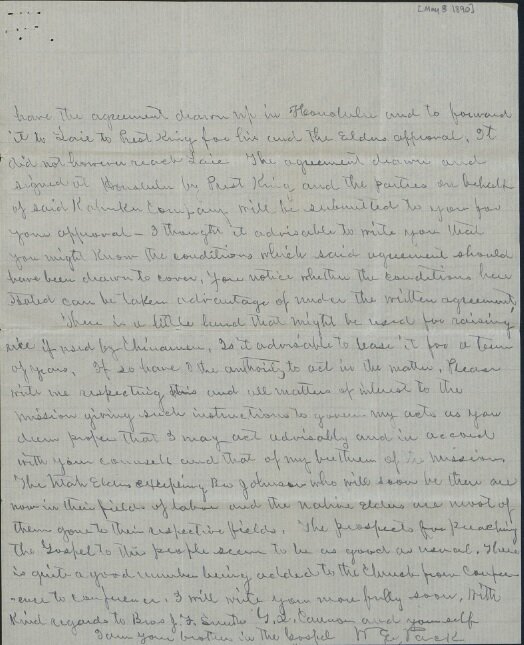 [May 3 1890]
have the agreement drawn up in Honolulu and to forward
it to Laie to Prest King for his and the Elders approval. It
did not however reach Laie. The agreement drawn and
signed at Honolulu by Prest King and the parties on behalf
of said Kahuku Company will be submitted to you for
your approval - I thought it advisable to write you that
you might know the conditions which said agreement should
have been drawn to cover. You notice whether the conditions here
stated can be taken advantage of under the written agreement,
There is a little land that might be used for raising
rice if used by Chinamen, Is it advisable to lease it for a term
of years. If so have I the authority to act in the matter, Please
write me respecting this and all matters of interest to the
mission giving such instructions to govern my acts as you
deem proper that I may act advisably and in accord
with your counsels and that of my brethren of mission.
The Utah Elders excepting Bro Johnson who will soon be there are
now in their fields of labor and the native Elders are most of
them gone to their respective fields. The prospects for preaching
the Gospel to this people seem to be as good as usual. There
is quite a good number being added to the Church from Confer
-ence to conference. I will write you more fully soon, With
Kind regards to Bros J. F. Smith G. Q. Cannon and yourself
I am your brother in the Gospel W E Pack